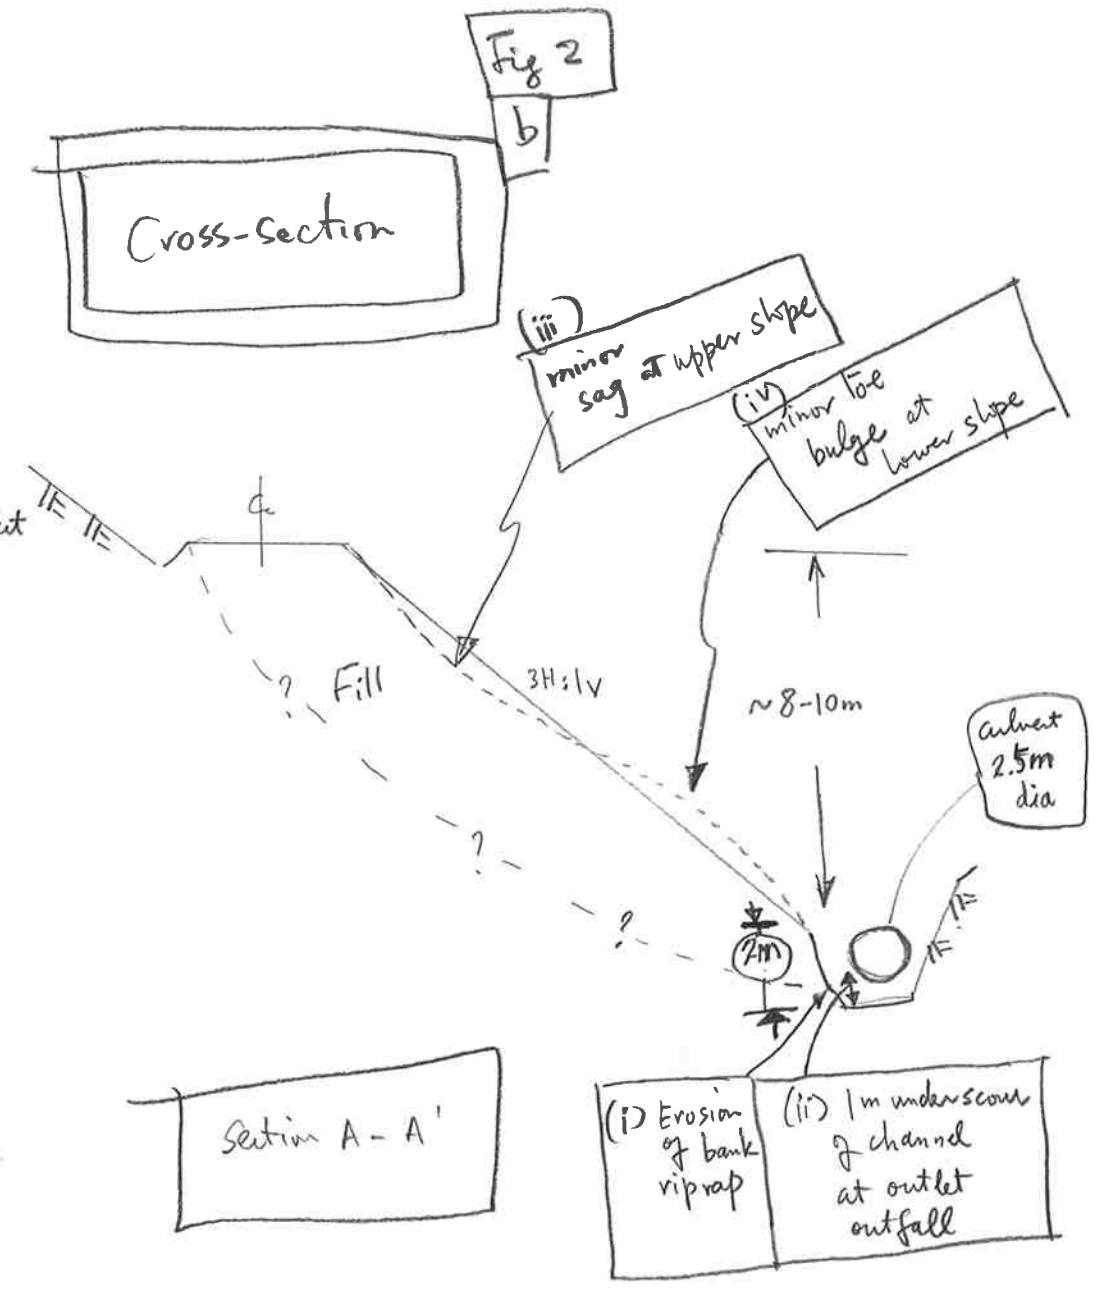 Fig 2
b
Cross-section
(iii)
minor
sag at upper slope
(iv)
minor toe
bulge at
lower slope
℄
Fill
?
?
?
3H:1V
~8-10m
culvert
2.5m
dia
2m
Section A-A'
(i) Erosion
of bank
riprap
(ii) 1m underscour
of channel
at outlet
outfall